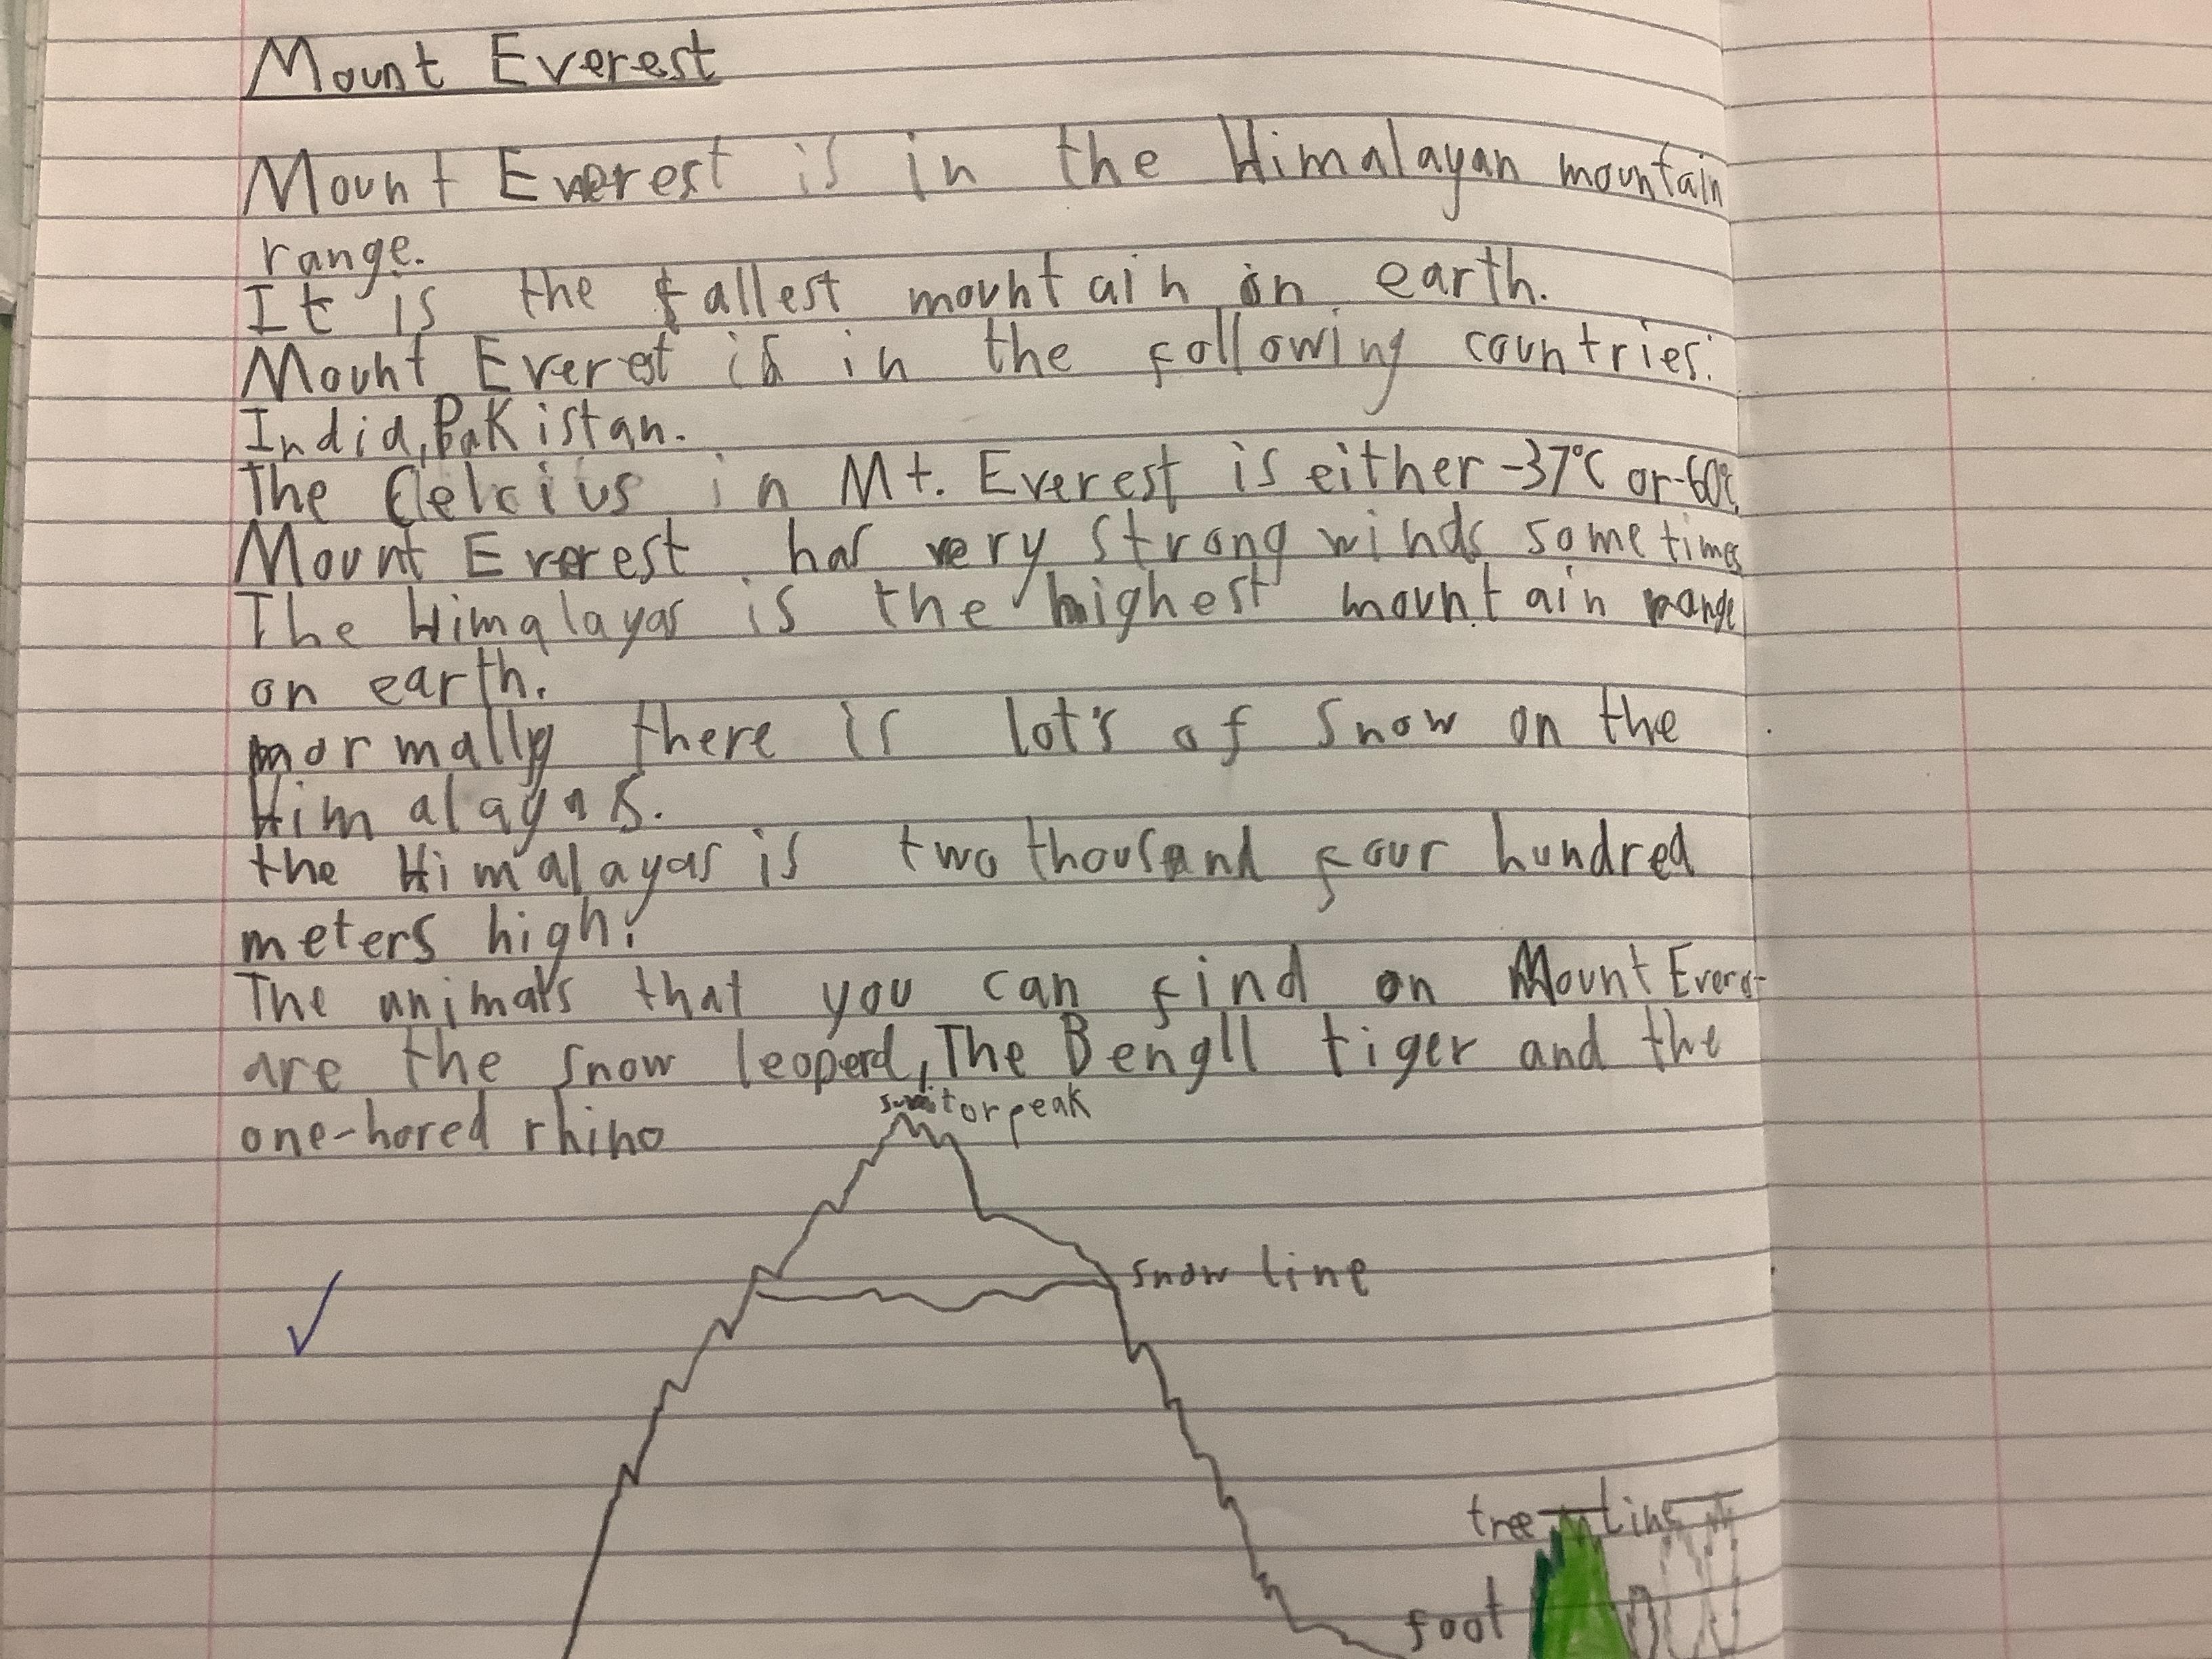 Mount Everest
Mount Everest is in the Himalayan mountain
range.
It is the tallest mountain on earth.
Mount Everest is in the following countries:
India, Pakistan.
The Celcius in Mt. Everest is either -37°C or -60°C.
Mount Everest has very strong winds sometimes
The Himalayas is the highest mountain range
on earth.
normally there is lot's of snow on the
Himalayas.
the Himalayas is two thousand four hundred
meters high.
The animals that you can find on Mount Everest
are the snow leoperd, The Bengll tiger and the
one-hored rhino
or peak
snow line
tree line
foot